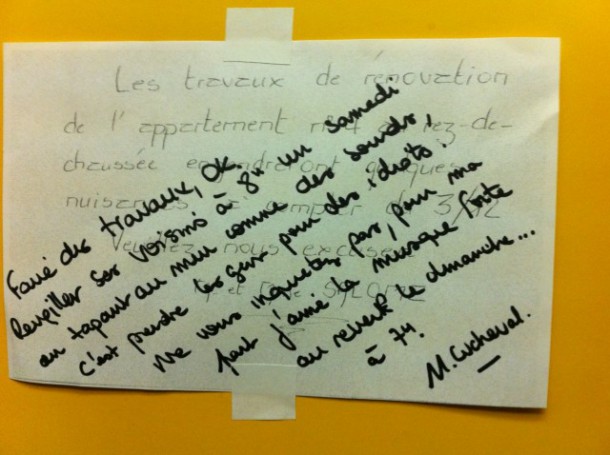 Les travaux de rénovation
de l'appartement rez-de-
chaussée engendreront quelques
nuisances à compter du 3/12
Veuillez nous excuser
et
Faire des travaux, OK.
Réveiller ses voisins à 8h un samedi
en tapant au mur comme des sourds,
c'est prendre les gens pour des idiots.
Ne vous inquiétez pas, pour ma
part j'aime la musique forte
au réveil le dimanche...
à 7h.
M. Cucheval.